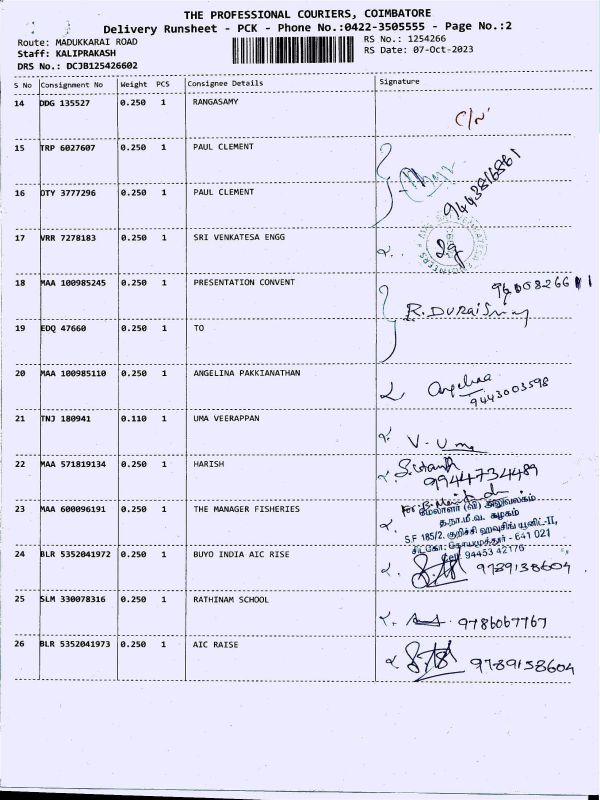 THE PROFESSIONAL COURIERS, COIMBATORE
Delivery Runsheet - PCK - Phone No.:0422-3505555 - Page No.:2
Route: MADUKKARAI ROAD
RS No.: 1254266
Staff: KALIPRAKASH
RS Date: 07-Oct-2023
DRS No.: DCJB125426602
S No Consignment No Weight PCS Consignee Details Signature
14 DDG 135527 0.250 1 RANGASAMY
C/N
15 TRP 6027607 0.250 1 PAUL CLEMENT
16 DTY 3777296 0.250 1 PAUL CLEMENT
9443816861
17 VRR 7278183 0.250 1 SRI VENKATESA ENGG
18 MAA 100985245 0.250 1 PRESENTATION CONVENT
R. DURAISamy
19 EDQ 47660 0.250 1 TO
20 MAA 100985110 0.250 1 ANGELINA PAKKIANATHAN
Angelina
9443003598
21 TNJ 180941 0.110 1 UMA VEERAPPAN
V. Uma
22 MAA 571819134 0.250 1 HARISH
9944734489
23 MAA 600096191 0.250 1 THE MANAGER FISHERIES
மேலாளர் (வி) அலுவலகம்
த.நா.மீ.வ. கழகம்
S.F 185/2, குறிச்சி ஹவுசிங் யூனிட்-II,
சிட்கோ: கோயமுத்தூர் - 641 021
Cell: 94453 42176
24 BLR 5352041972 0.250 1 BUYO INDIA AIC RISE
9789158604
25 SLM 330078316 0.250 1 RATHINAM SCHOOL
9786067767
26 BLR 5352041973 0.250 1 AIC RAISE
9789158604